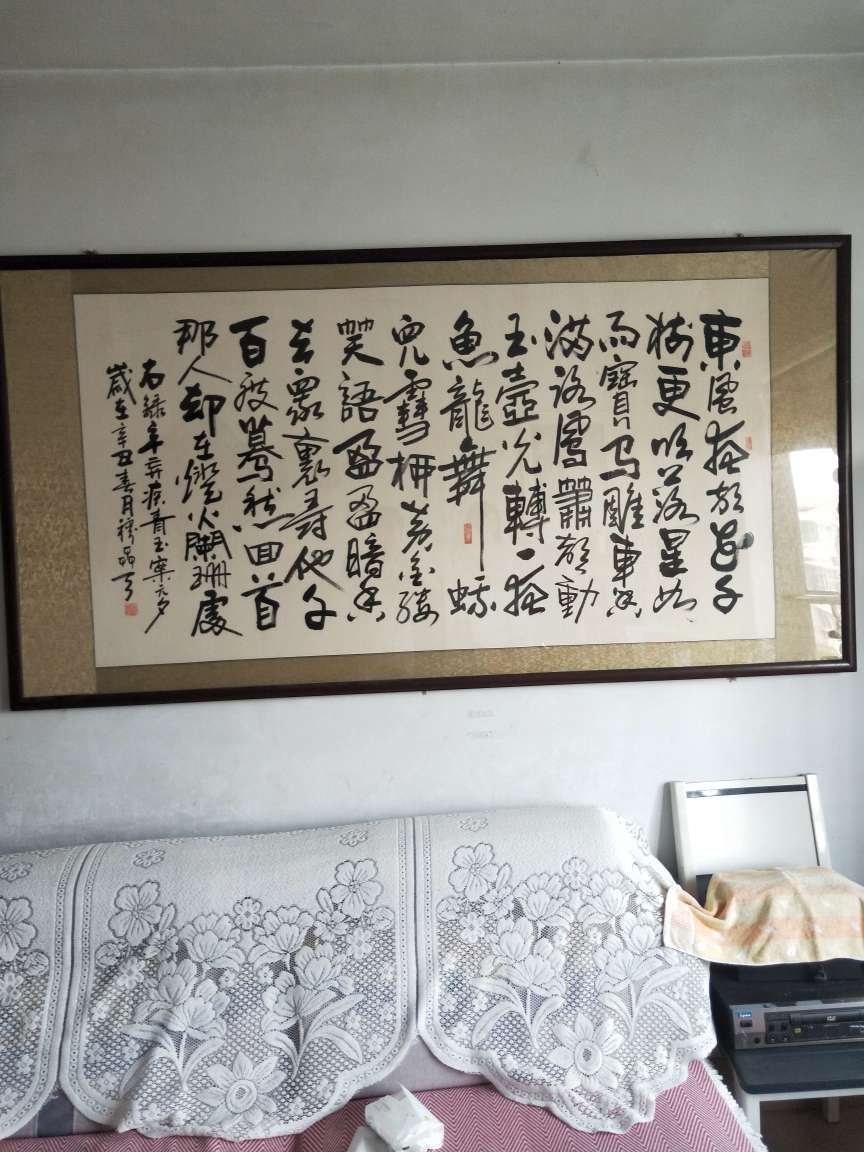 東風夜放花千
樹更吹落星如
雨寶马雕車香
滿路鳳簫聲動
玉壺光轉一夜
魚龍舞 蛾
兒雪柳黃金縷
笑語盈盈暗香
去眾裏尋他千
百度驀然回首
那人却在燈火闌珊處
右錄辛弃疾青玉案元夕
歲在辛丑春月
DVD